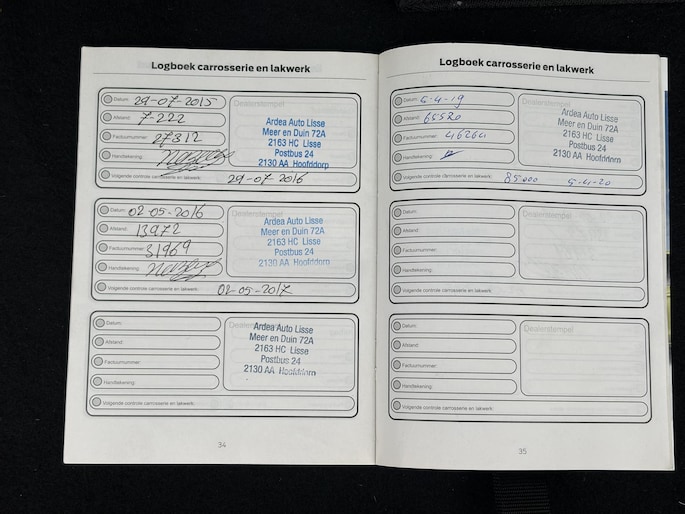 Logboek carrosserie en lakwerk
Datum: 29-07-2015
Afstand: 7-222
Factuurnummer: 27312
Handtekening:
Volgende controle carrosserie en lakwerk: 29-07-2016
Dealerstempel
Ardea Auto Lisse
Meer en Duin 72A
2163 HC Lisse
Postbus 24
2130 AA Hoofddorp
Datum: 02-05-2016
Afstand: 13972
Factuurnummer: 31969
Handtekening:
Volgende controle carrosserie en lakwerk: 02-05-2017
Ardea Auto Lisse
Meer en Duin 72A
2163 HC Lisse
Postbus 24
2130 AA Hoofddorp
Datum:
Afstand:
Factuurnummer:
Handtekening:
Volgende controle carrosserie en lakwerk:
Ardea Auto Lisse
Meer en Duin 72A
2163 HC Lisse
Postbus 24
2130 AA Hoofddorp
34
Logboek carrosserie en lakwerk
Datum: 5-4-19
Afstand: 65520
Factuurnummer: 46264
Handtekening:
Volgende controle carrosserie en lakwerk: 85000 5-4-20
Dealerstempel
Ardea Auto Lisse
Meer en Duin 72A
2163 HC Lisse
Postbus 24
2130 AA Hoofddorp
Datum:
Afstand:
Factuurnummer:
Handtekening:
Volgende controle carrosserie en lakwerk:
Dealerstempel
Datum:
Afstand:
Factuurnummer:
Handtekening:
Volgende controle carrosserie en lakwerk:
Dealerstempel
35